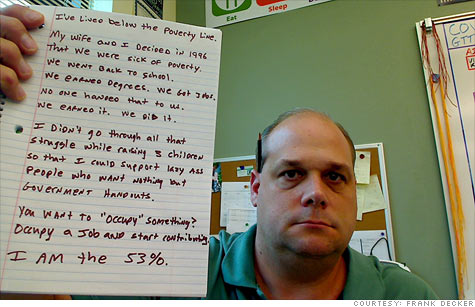 Eat
Sleep
I've Lived below the Poverty Line.
My wife and I decided in 1996
that we were sick of poverty.
We went back to school.
We earned degrees. We got jobs.
No one handed that to us.
We earned it. We did it.
I didn't go through all that
struggle while raising 3 children
so that I could support lazy ass
people who want nothing but
Government Handouts.
You want to "occupy" something?
Occupy a job and start contributing.
I AM the 53%.
COURTESY: FRANK DECKER